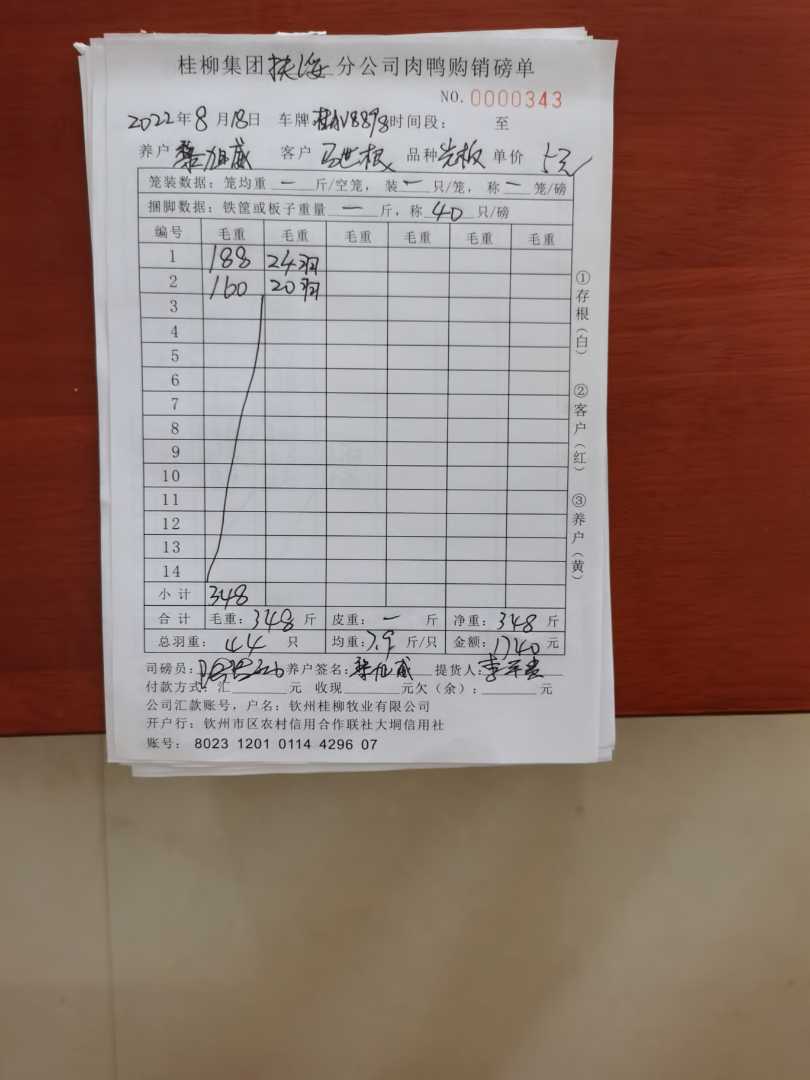 桂柳集团扶海分公司肉鸭购销磅单
NO. 0000343
2022年8月18日 车牌 桂AV8898 时间段： 至
养户 黎旭威 客户 马世根 品种 光板 单价 5元
笼装数据：笼均重 一 斤/空笼，装 一 只/笼，称 一 笼/磅
捆脚数据：铁筐或板子重量 一 斤，称 40 只/磅
编号 毛重 毛重 毛重 毛重 毛重 毛重
1 188 24羽
2 160 20羽
3
4
5
6
7
8
9
10
11
12
13
14
小计 348
合计 毛重：348斤 皮重：一 斤 净重：348斤
总羽重：44 只 均重：7.9斤/只 金额：1740元
司磅员： 养户签名：黎旭威 提货人：
付款方式：汇 元 收现 元欠（余）： 元
公司汇款账号，户名：钦州桂柳牧业有限公司
开户行：钦州市区农村信用合作联社大垌信用社
账号：8023 1201 0114 4296 07
①存根（白）
②客户（红）
③养户（黄）